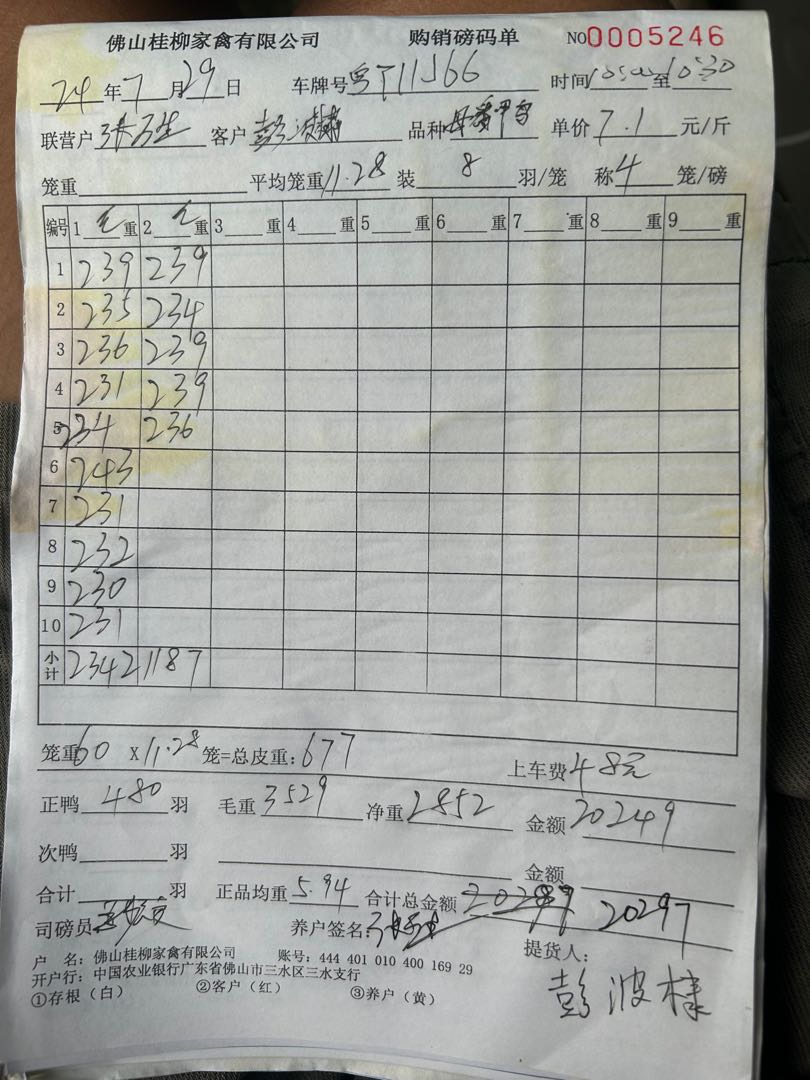 佛山桂柳家禽有限公司 购销磅码单 NO0005246
24年7月29日 车牌号粤T11J66 时间 至10:30
联营户 客户彭波 品种母番甲鸟 单价7.1元/斤
笼重 平均笼重11.28装8羽/笼 称4笼/磅
编号 1毛重 2毛重 3重 4重 5重 6重 7重 8重 9重
1 239 239
2 235 234
3 236 239
4 231 239
5 234 236
6 243
7 231
8 232
9 230
10 231
小计 2342 1187
笼重60X11.28笼=总皮重:677
上车费48元
正鸭480羽 毛重3529 净重2852 金额20249
次鸭羽 金额
合计羽 正品均重5.94 合计总金额 20297
司磅员 养户签名: 提货人:
彭波样
户 名:佛山桂柳家禽有限公司 账号:444 401 010 400 169 29
开户行:中国农业银行广东省佛山市三水区三水支行
①存根(白) ②客户(红) ③养户(黄)